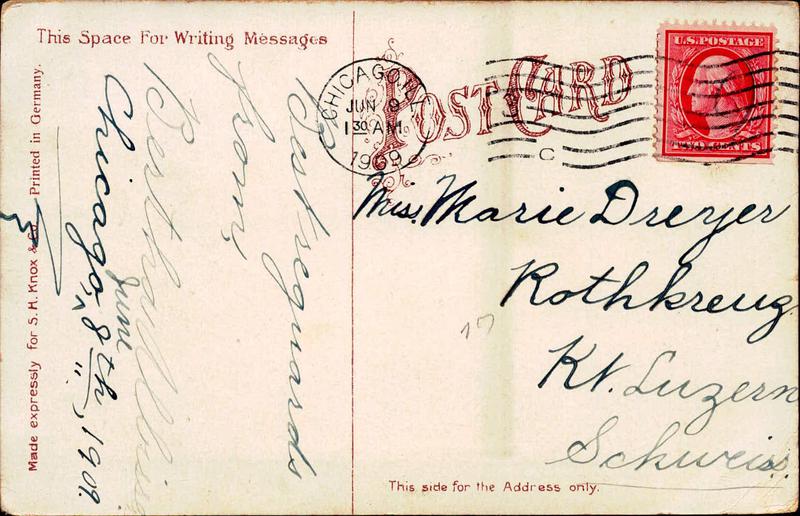 This Space For Writing Messages
POST CARD
CHICAGO
JUN 9
1 30 AM
1909
C
U.S. POSTAGE
TWO CENTS
Miss. Marie Dreyer
Rothkreuz
Kt. Luzern
Schweiss.
17
This side for the Address only.
Best reguards
from,
Chicago, June 8th, 1909.
Made expressly for S. H. Knox & Co. Printed in Germany.